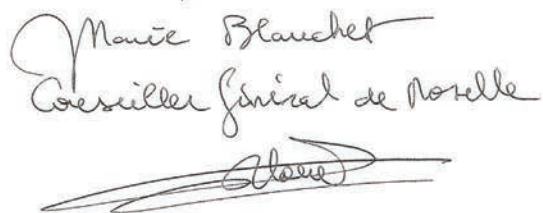 Marie Blanchet
Conseiller Général de Moselle